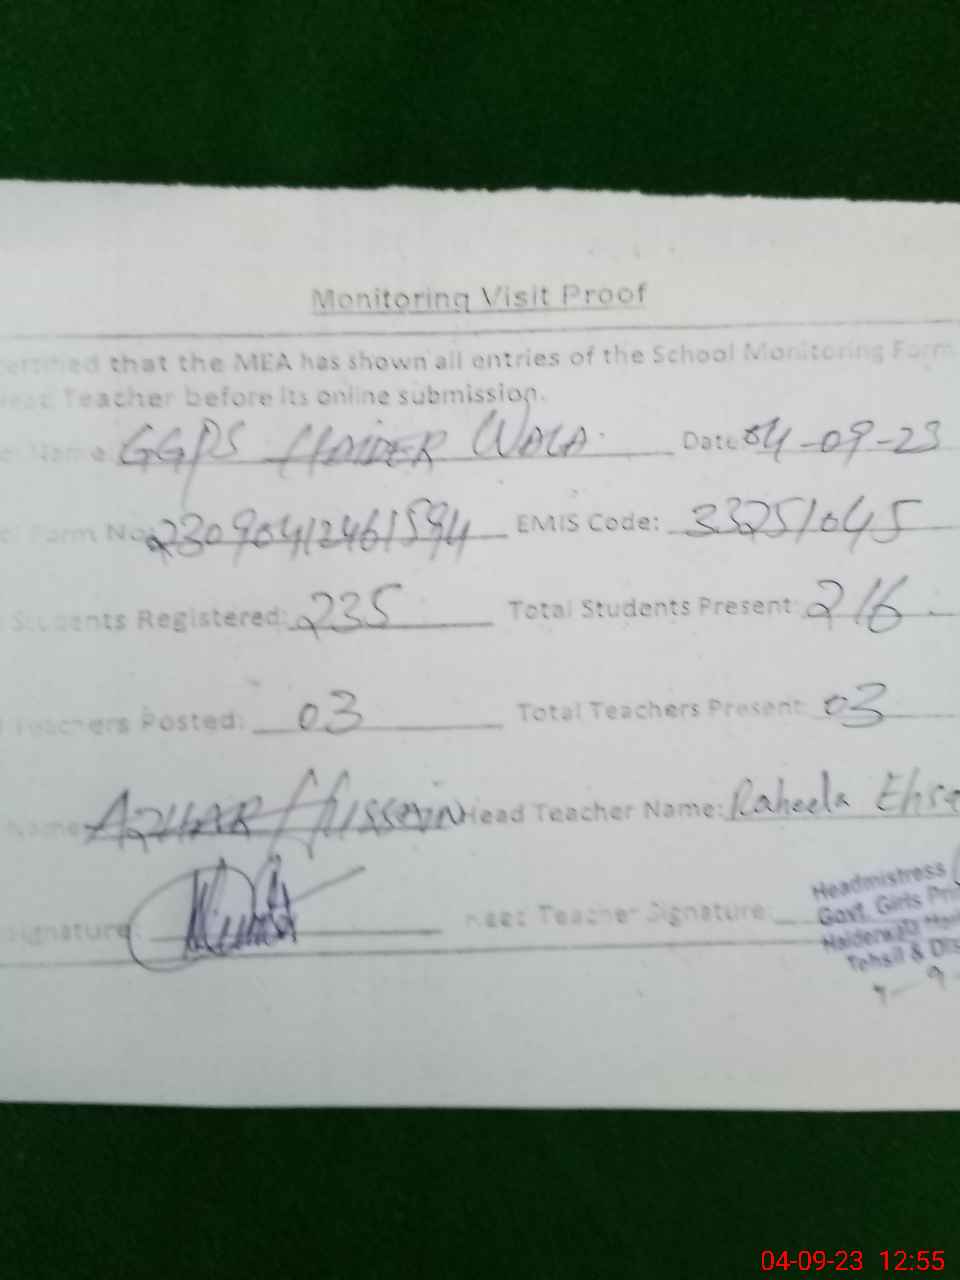 Monitoring Visit Proof
that the MEA has shown all entries of the School Monitoring Form
Teacher before its online submission.
Name GGPS HAIDER WALA. Date 04-09-23
Form No: 23090412461594 EMIS Code: 33251045
Students Registered: 235 Total Students Present: 216
Teachers Posted: 03 Total Teachers Present: 03
Name AZHAR HUSSAIN Head Teacher Name: Raheela
Signature: Head Teacher Signature:
Headmistress
Govt. Girls
Tehsil &
04-09-23 12:55